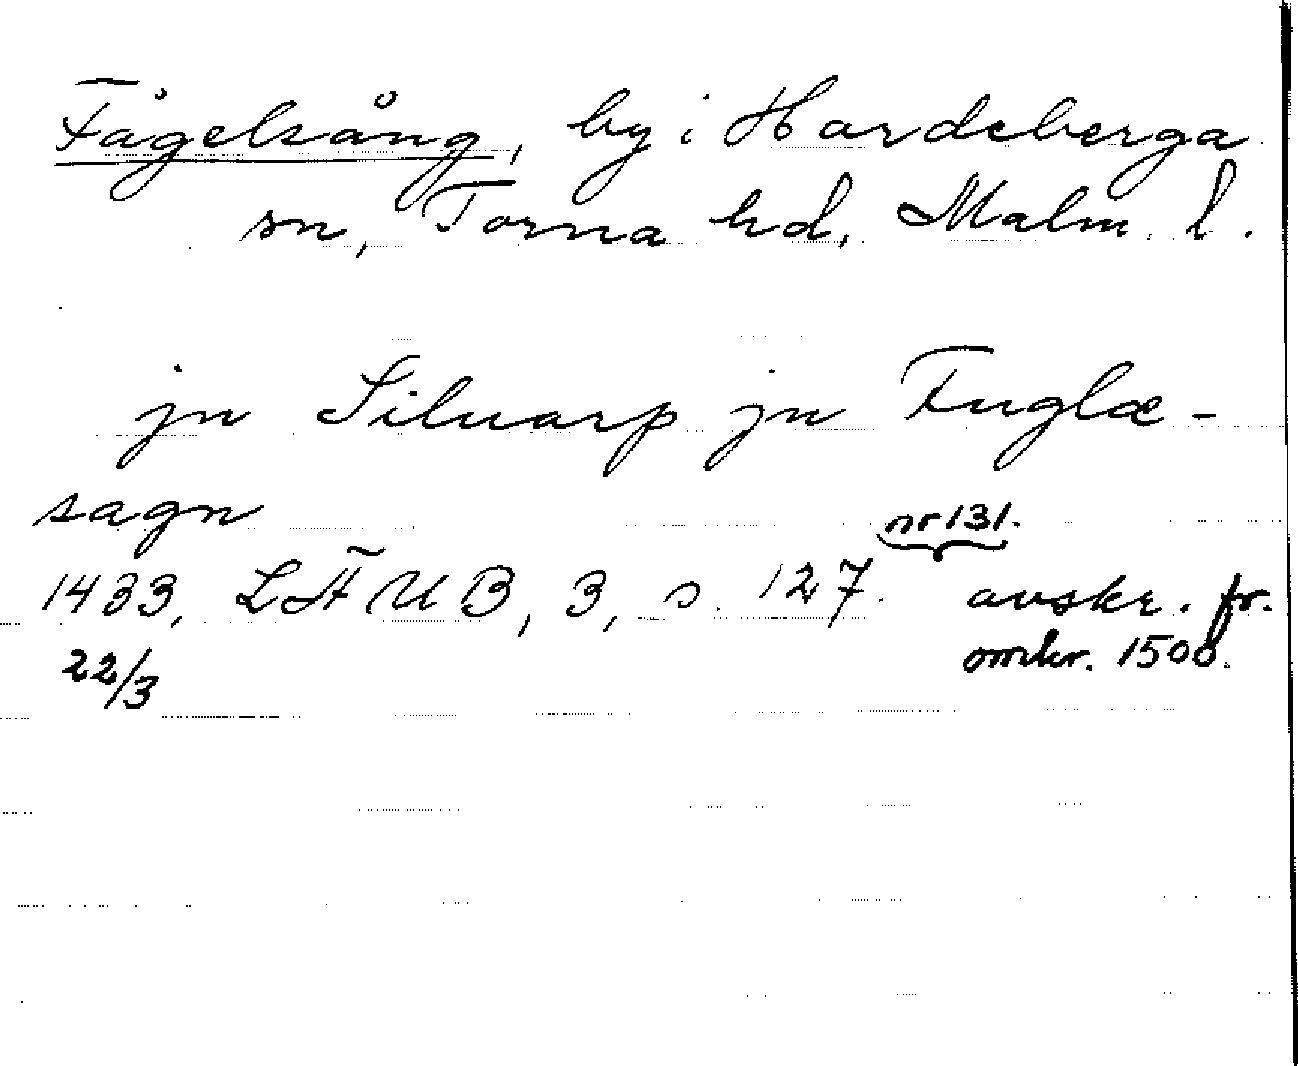 Fågelsång, by i Hardeberga
sn, Torna hd, Malm. l.
jn Siluarp jn Fuglæ-
sagn
nr 131.
1433, LÄUB, 3, s. 127. avskr. fr.
22/3 omkr. 1500.